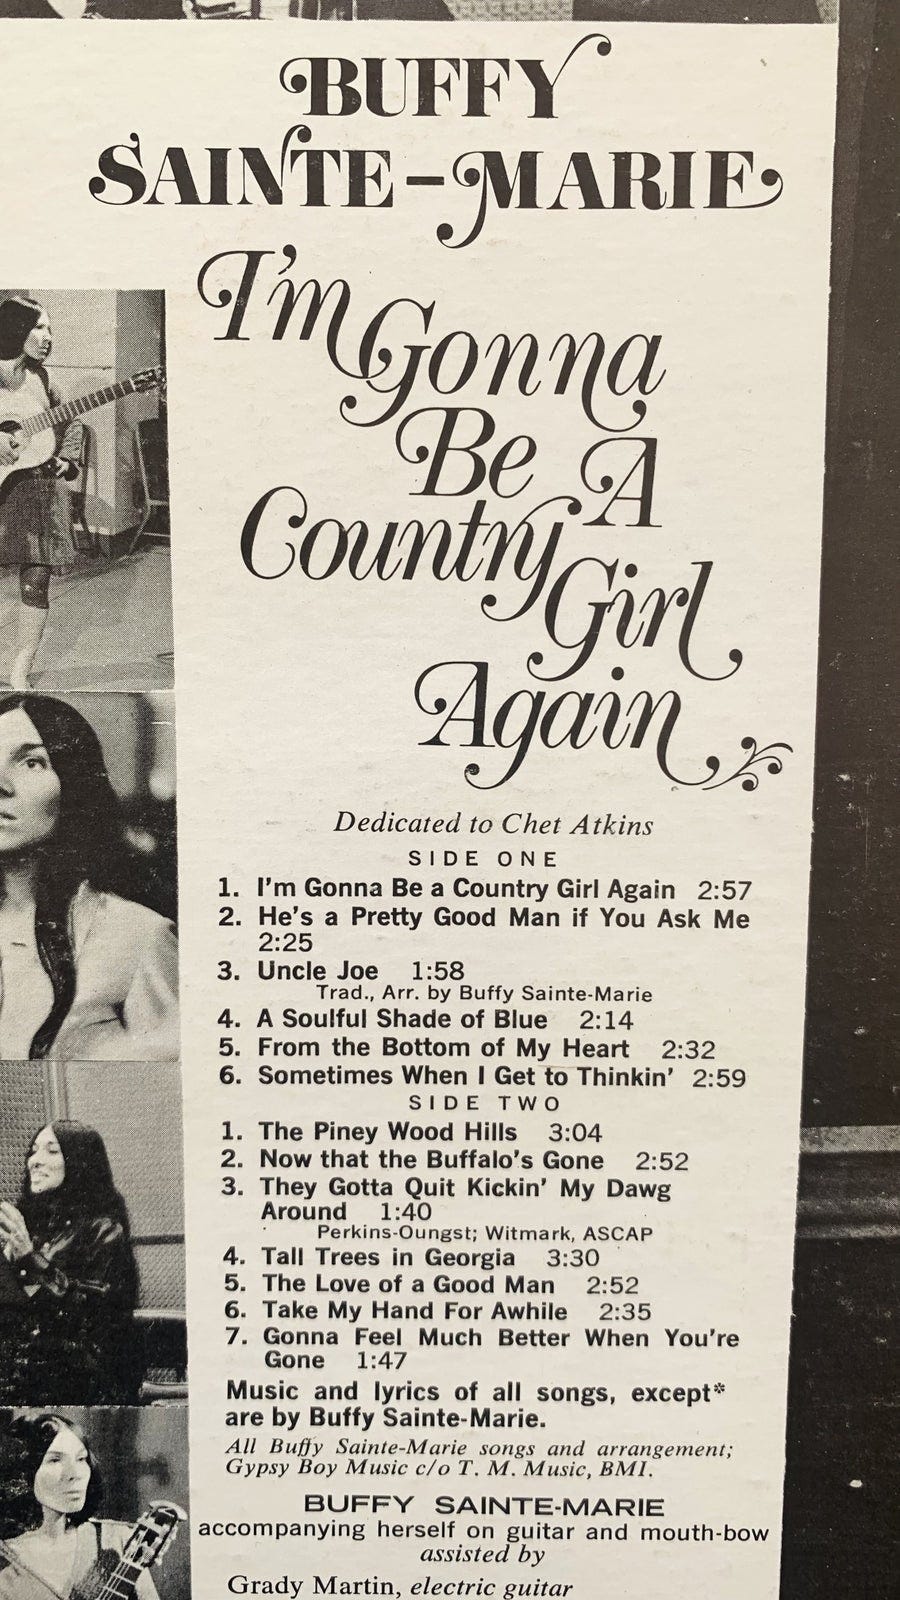 BUFFY
SAINTE-MARIE
I'm
Gonna
Be A
Country
Girl
Again
Dedicated to Chet Atkins
SIDE ONE
1. I'm Gonna Be a Country Girl Again 2:57
2. He's a Pretty Good Man if You Ask Me
2:25
3. Uncle Joe 1:58
Trad., Arr. by Buffy Sainte-Marie
4. A Soulful Shade of Blue 2:14
5. From the Bottom of My Heart 2:32
6. Sometimes When I Get to Thinkin' 2:59
SIDE TWO
1. The Piney Wood Hills 3:04
2. Now that the Buffalo's Gone 2:52
3. They Gotta Quit Kickin' My Dawg
Around 1:40
Perkins-Oungst; Witmark, ASCAP
4. Tall Trees in Georgia 3:30
5. The Love of a Good Man 2:52
6. Take My Hand For Awhile 2:35
7. Gonna Feel Much Better When You're
Gone 1:47
Music and lyrics of all songs, except*
are by Buffy Sainte-Marie.
All Buffy Sainte-Marie songs and arrangement;
Gypsy Boy Music c/o T. M. Music, BMI.
BUFFY SAINTE-MARIE
accompanying herself on guitar and mouth-bow
assisted by
Grady Martin, electric guitar